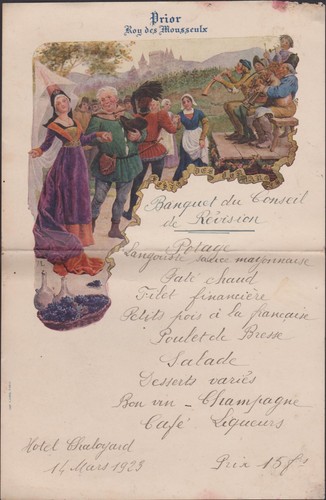 Prior
Roy des Mousseulx
Banquet du Conseil
de Révision
Potage
Langouste sauce mayonnaise
Paté chaud
Filet financière
Petits pois à la francaise
Poulet de Bresse
Salade
Desserts variés
Bon vin - Champagne
Café Liqueurs
Hotel Chaloyard
14 Mars 1923
Prix 15 frs